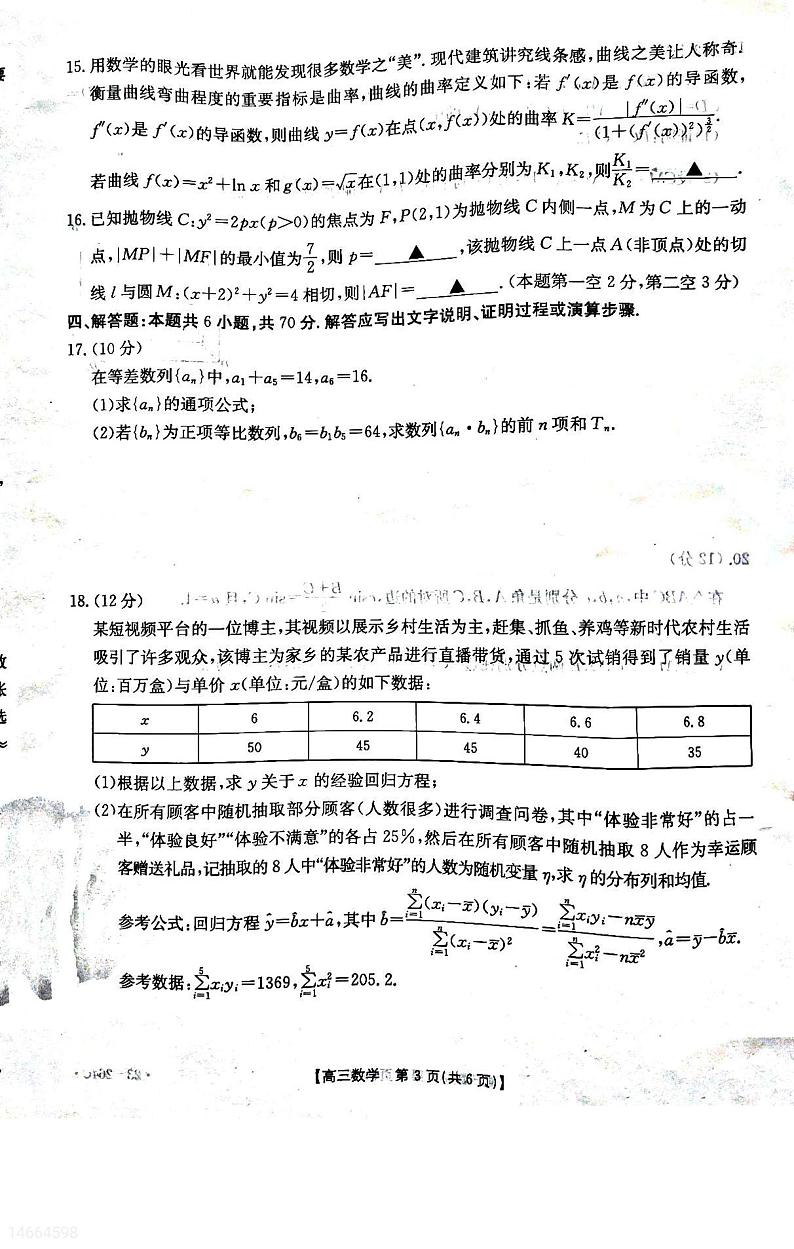 15.用数学的眼光看世界就能发现很多数学之“美”.现代建筑讲究线条感,曲线之美让人称奇.
衡量曲线弯曲程度的重要指标是曲率,曲线的曲率定义如下:若 f′(x)是 f(x)的导函数,
f″(x)是 f′(x)的导函数,则曲线 y=f(x)在点(x,f(x))处的曲率 K=|f″(x)|/(1+(f′(x))²)^{3/2}.
若曲线 f(x)=x²+ln x 和 g(x)=√x在(1,1)处的曲率分别为K₁,K₂,则K₁/K₂=▲.
16.已知抛物线 C:y²=2px(p>0)的焦点为 F,P(2,1)为抛物线 C 内侧一点,M 为 C 上的一动
点,|MP|+|MF|的最小值为7/2,则 p=▲,该抛物线 C 上一点 A(非顶点)处的切
线 l 与圆 M:(x+2)²+y²=4 相切,则|AF|=▲.(本题第一空 2 分,第二空 3 分)
四、解答题:本题共 6 小题,共 70 分.解答应写出文字说明、证明过程或演算步骤.
17.(10 分)
在等差数列{aₙ}中,a₁+a₅=14,a₆=16.
(1)求{aₙ}的通项公式;
(2)若{bₙ}为正项等比数列,b₆=b₁b₅=64,求数列{aₙ·bₙ}的前 n 项和 Tₙ.
18.(12 分)
某短视频平台的一位博主,其视频以展示乡村生活为主,赶集、抓鱼、养鸡等新时代农村生活
吸引了许多观众,该博主为家乡的某农产品进行直播带货,通过 5 次试销得到了销量 y(单
位:百万盒)与单价 x(单位:元/盒)的如下数据:
x 6 6.2 6.4 6.6 6.8
y 50 45 45 40 35
(1)根据以上数据,求 y 关于 x 的经验回归方程;
(2)在所有顾客中随机抽取部分顾客(人数很多)进行调查问卷,其中“体验非常好”的占一
半,“体验良好”“体验不满意”的各占 25%,然后在所有顾客中随机抽取 8 人作为幸运顾
客赠送礼品,记抽取的 8 人中“体验非常好”的人数为随机变量 η,求 η 的分布列和均值.
参考公式:回归方程 ŷ=b̂x+â,其中 b̂=∑ⁿᵢ₌₁(xᵢ−x̄)(yᵢ−ȳ)/∑ⁿᵢ₌₁(xᵢ−x̄)²=(∑ⁿᵢ₌₁xᵢyᵢ−nx̄ȳ)/(∑ⁿᵢ₌₁xᵢ²−nx̄²),â=ȳ−b̂x̄.
参考数据:∑⁵ᵢ₌₁xᵢyᵢ=1369,∑⁵ᵢ₌₁xᵢ²=205.2.
【高三数学 第 3 页(共 6 页)】
14664598